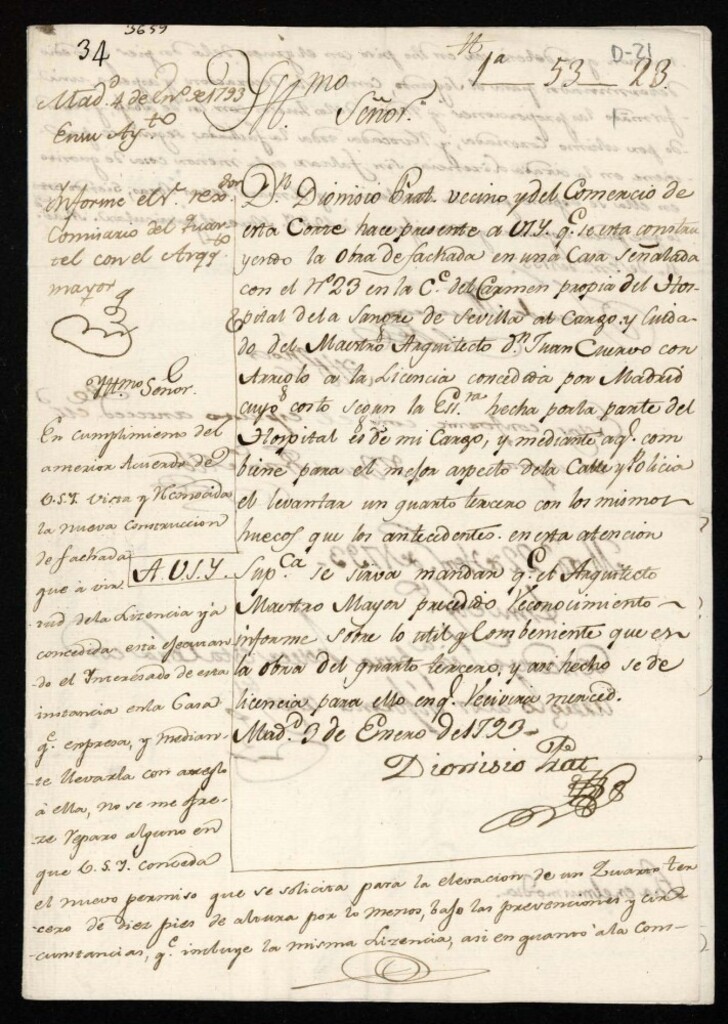 3659
34
D-21
1ª 53 28
Madᵈ 4 de Enº de 1793
En su Aytº
Informe el Sʳ rexᵈᵒʳ
Comisario del Quar-
tel con el Arqqᵗᵒ
mayor
Yllmo
Señor.
Dⁿ Dionisio Prat vecino y del Comercio de
esta Corte hace presente a VSY. qᵉ se esta constru
yendo la Obra de fachada en una Casa Señalada
con el Nº 23 en la Cᵉ del Carmen propia del Hos-
pital de la Sangre de Sevilla al Cargo y Cuida-
do del Maestro Arquitecto Dⁿ Juan Cuervo con
Arreglo a la Licencia concedida por Madrid
cuyo costo segun la Essʳᵃ hecha por la parte del
Hospital es de mi Cargo, y mediante a qᵉ com
biene para el mejor aspecto de la Calle y Policia
el levantar un quarto tercero con los mismos
huecos que los antecedentes. en esta atencion
A. VSY. Supᶜᵃ se sirva mandar qᵉ el Arquitecto
Maestro Mayor precedido Reconocimiento
informe sobre lo util y Combeniente que es
la obra del quarto tercero, y asi hecho se de
licencia para ello en qᵉ Recivira merced.
Madᵈ 3 de Enero de 1793
Dionisio Prat
Yllmo Señor.
En cumplimiento del
anterior Acuerdo de
V.S.Y. vista y Reconocida
la nueva Construccion
de fachada
que à vir-
tud de la Lizencia ya
concedida està ejecutan-
do el Interesado de esta
instancia en la Casa
qᵉ expresa, y median-
te llevarla con arreglo
à ella, no se me ofre-
ze reparo alguno en
que V.S.Y. conceda
el nuevo permiso que se solicita para la elevacion de un Quarto ter
cero de diez pies de altura por lo menos, bajo las prevenciones y cir
cunstancias, qᵉ incluye la misma Lizencia, asi en quanto à la Cons-